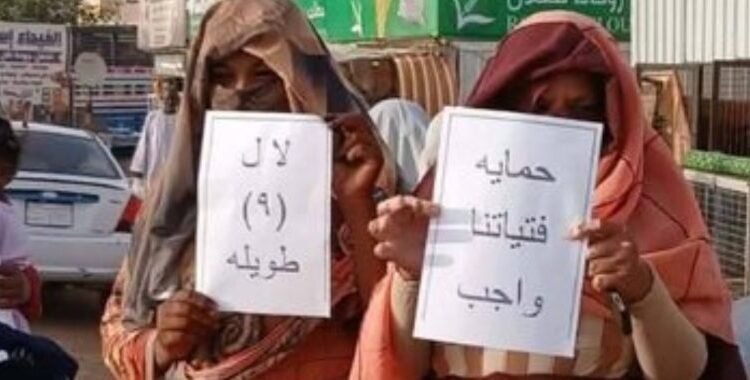 لا ل
(٩)
طويله
حمايه
فتياتنا
واجب